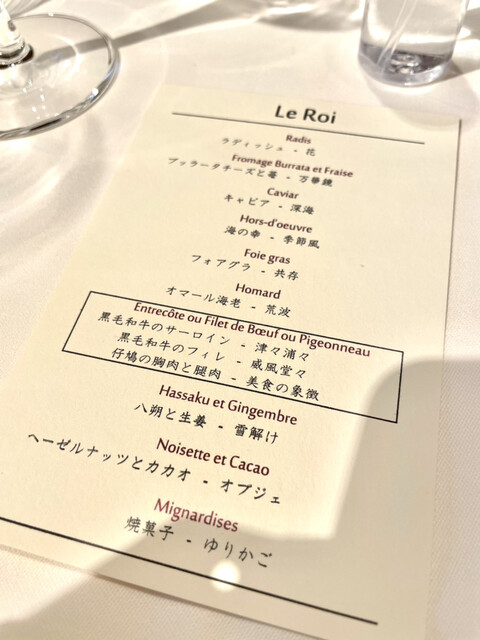 Le Roi
Radis
ラディッシュ - 花
Fromage Burrata et Fraise
ブッラータチーズと苺 - 万華鏡
Caviar
キャビア - 深海
Hors-d'oeuvre
海の幸 - 季節風
Foie gras
フォアグラ - 共存
Homard
オマール海老 - 荒波
Entrecôte ou Filet de Bœuf ou Pigeonneau
黒毛和牛のサーロイン - 津々浦々
黒毛和牛のフィレ - 威風堂々
仔鳩の胸肉と腿肉 - 美食の象徴
Hassaku et Gingembre
八朔と生姜 - 雪解け
Noisette et Cacao
ヘーゼルナッツとカカオ - オブジェ
Mignardises
焼菓子 - ゆりかご